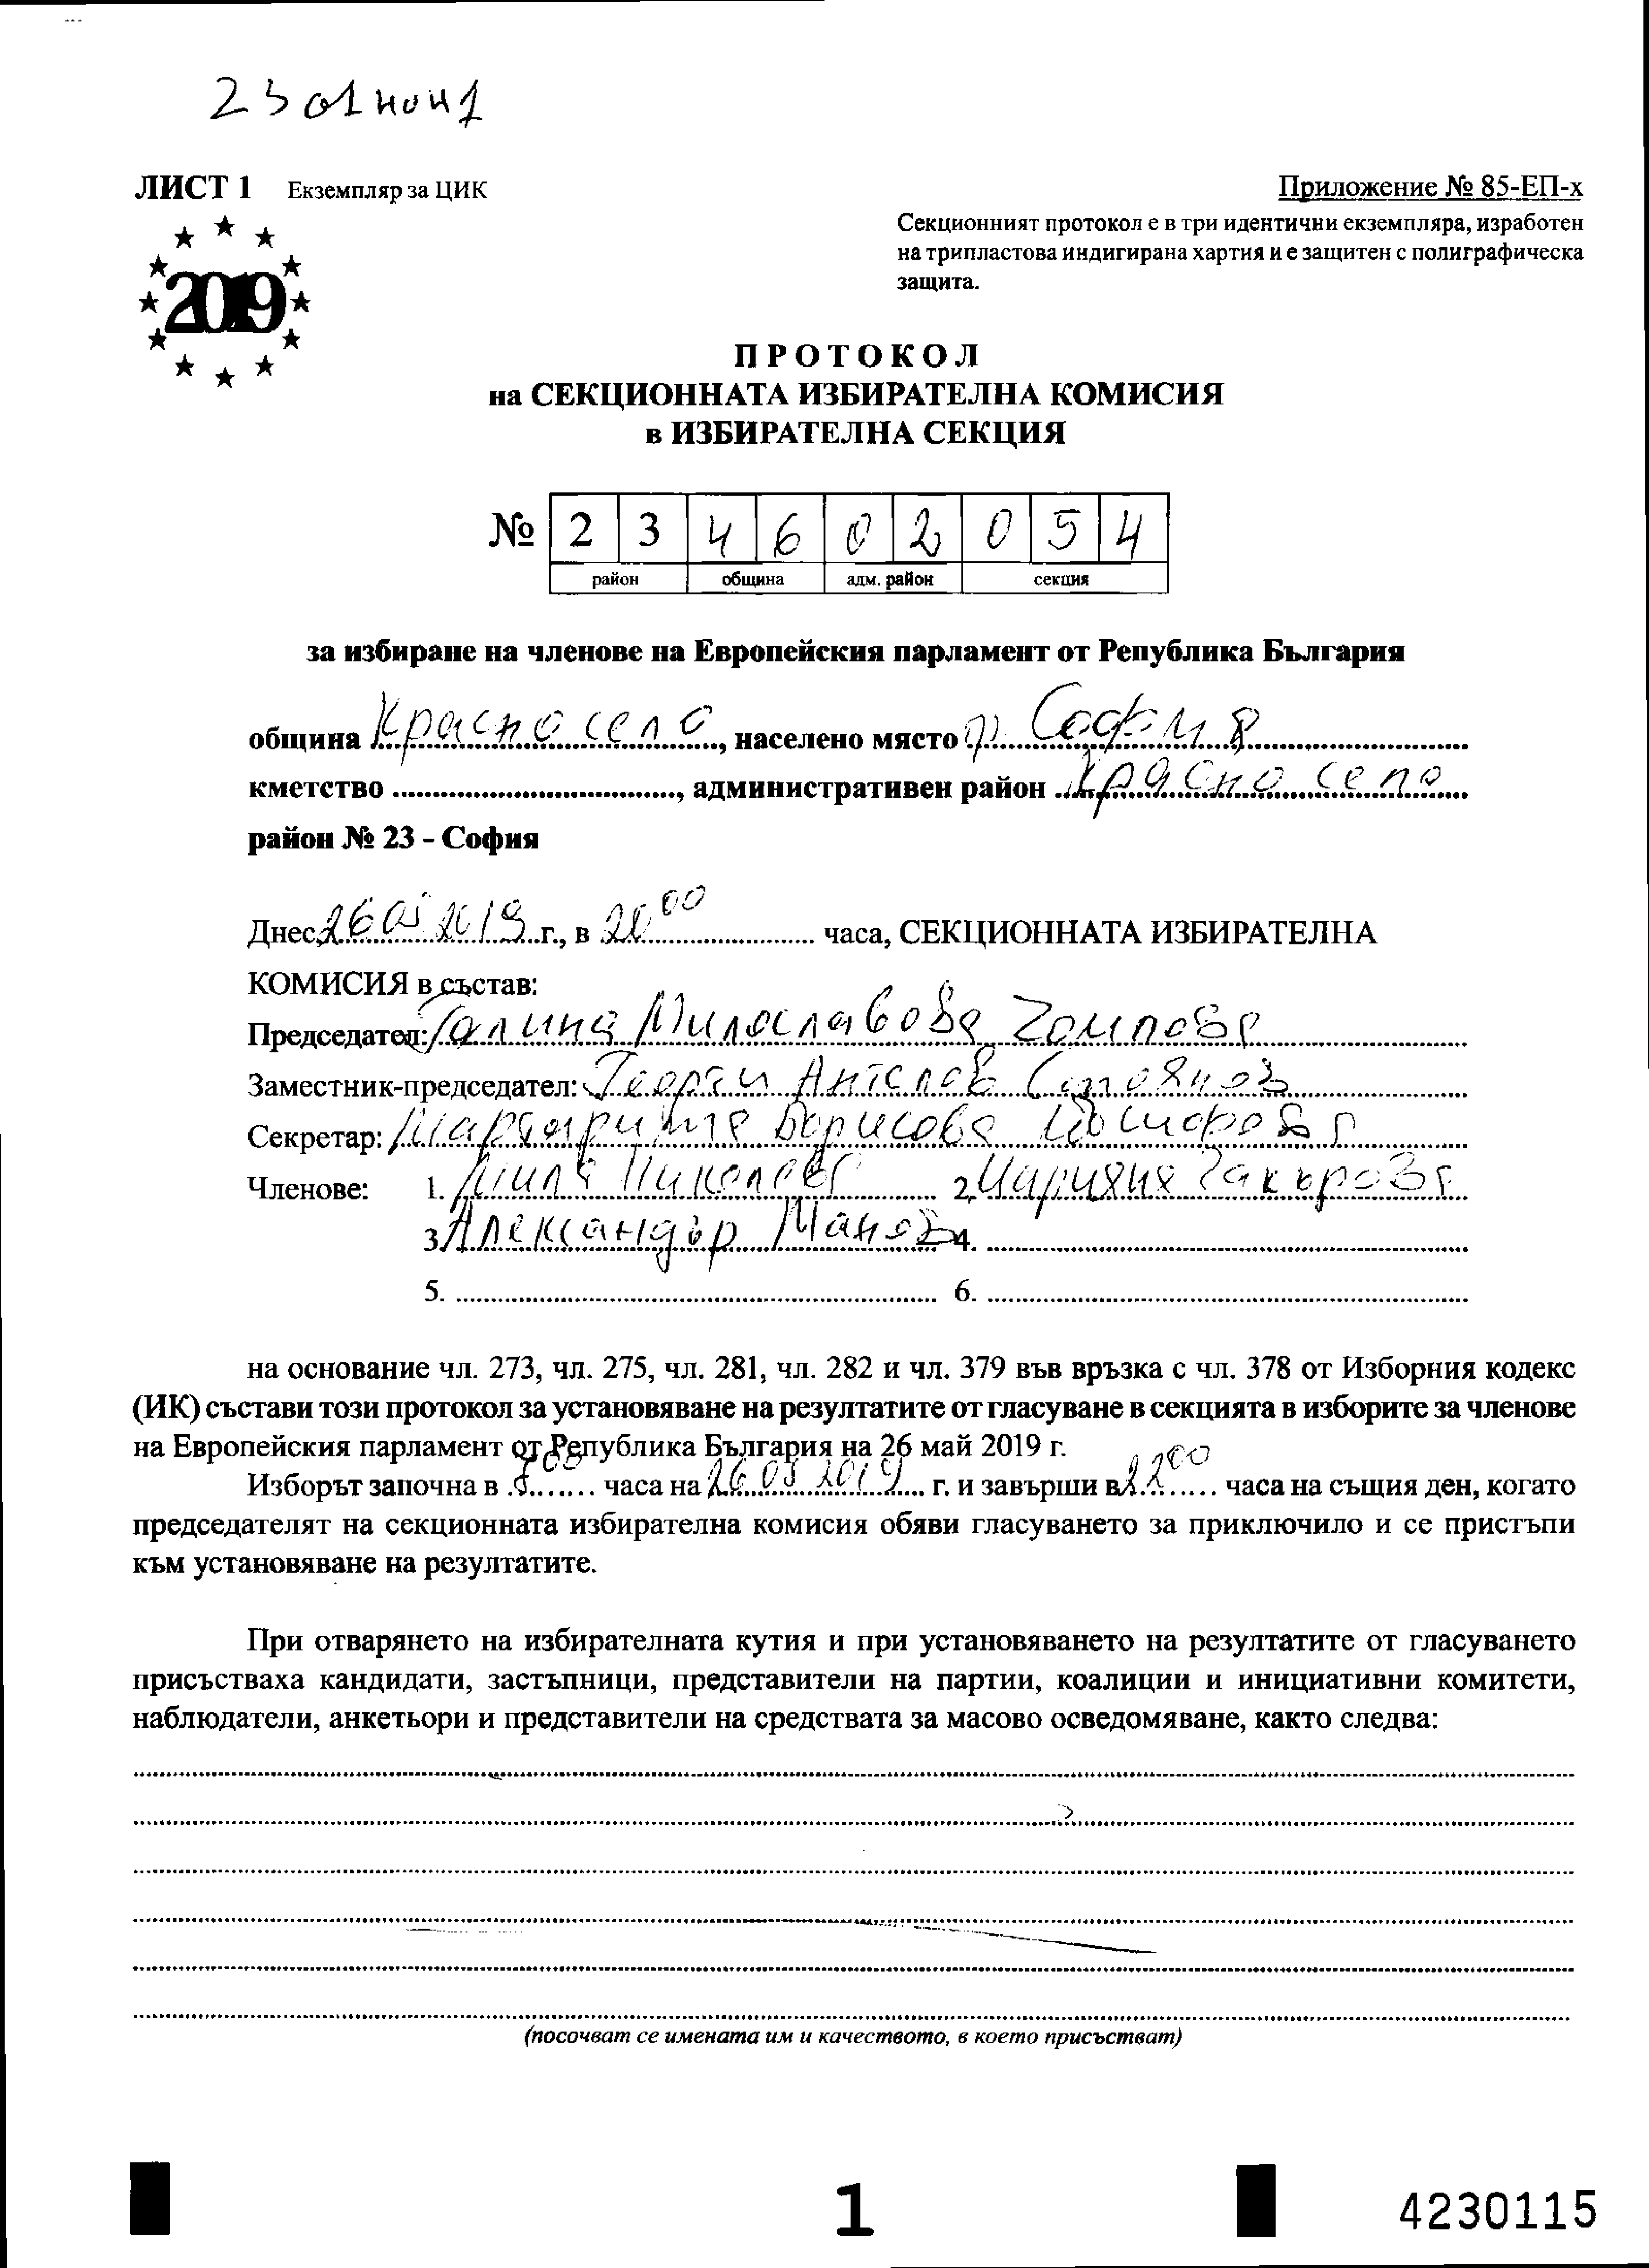 ЛИСТ 1 Екземпляр за ЦИК
Приложение № 85-ЕП-х
Секционният протокол е в три идентични екземпляра, изработен
на трипластова индигирана хартия и е защитен с полиграфическа
защита.
2019
ПРОТОКОЛ
на СЕКЦИОННАТА ИЗБИРАТЕЛНА КОМИСИЯ
в ИЗБИРАТЕЛНА СЕКЦИЯ
№ 2 3 4 6 0 2 0 5 4
район община адм. район секция
за избиране на членове на Европейския парламент от Република България
община Красно село, населено място гр. София
кметство ........, административен район Красно село
район № 23 - София
Днес 26.05.2019 г., в 20 00 часа, СЕКЦИОННАТА ИЗБИРАТЕЛНА
КОМИСИЯ в състав:
Председател: Галина Милославова
Заместник-председател: Георги Ангелов Стоянов
Секретар: Маргарита Борисова
Членове: 1. Николова 2. Закърова
3. Александър Манов 4.
5. 6.
на основание чл. 273, чл. 275, чл. 281, чл. 282 и чл. 379 във връзка с чл. 378 от Изборния кодекс
(ИК) състави този протокол за установяване на резултатите от гласуване в секцията в изборите за членове
на Европейския парламент от Република България на 26 май 2019 г.
Изборът започна в 7 00 часа на 26.05.2019 г. и завърши в часа на същия ден, когато
председателят на секционната избирателна комисия обяви гласуването за приключило и се пристъпи
към установяване на резултатите.
При отварянето на избирателната кутия и при установяването на резултатите от гласуването
присъстваха кандидати, застъпници, представители на партии, коалиции и инициативни комитети,
наблюдатели, анкетьори и представители на средствата за масово осведомяване, както следва:
(посочват се имената им и качеството, в което присъстват)
1
4230115